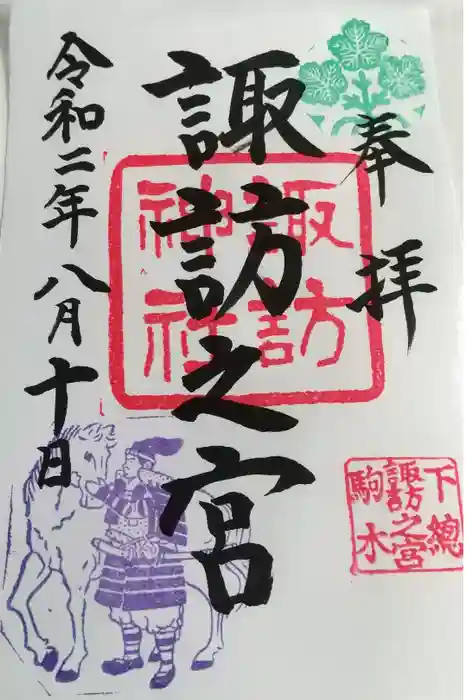 奉拝
諏訪之宮
諏訪
神社
下總
諏訪之宮
駒木
令和二年八月十日